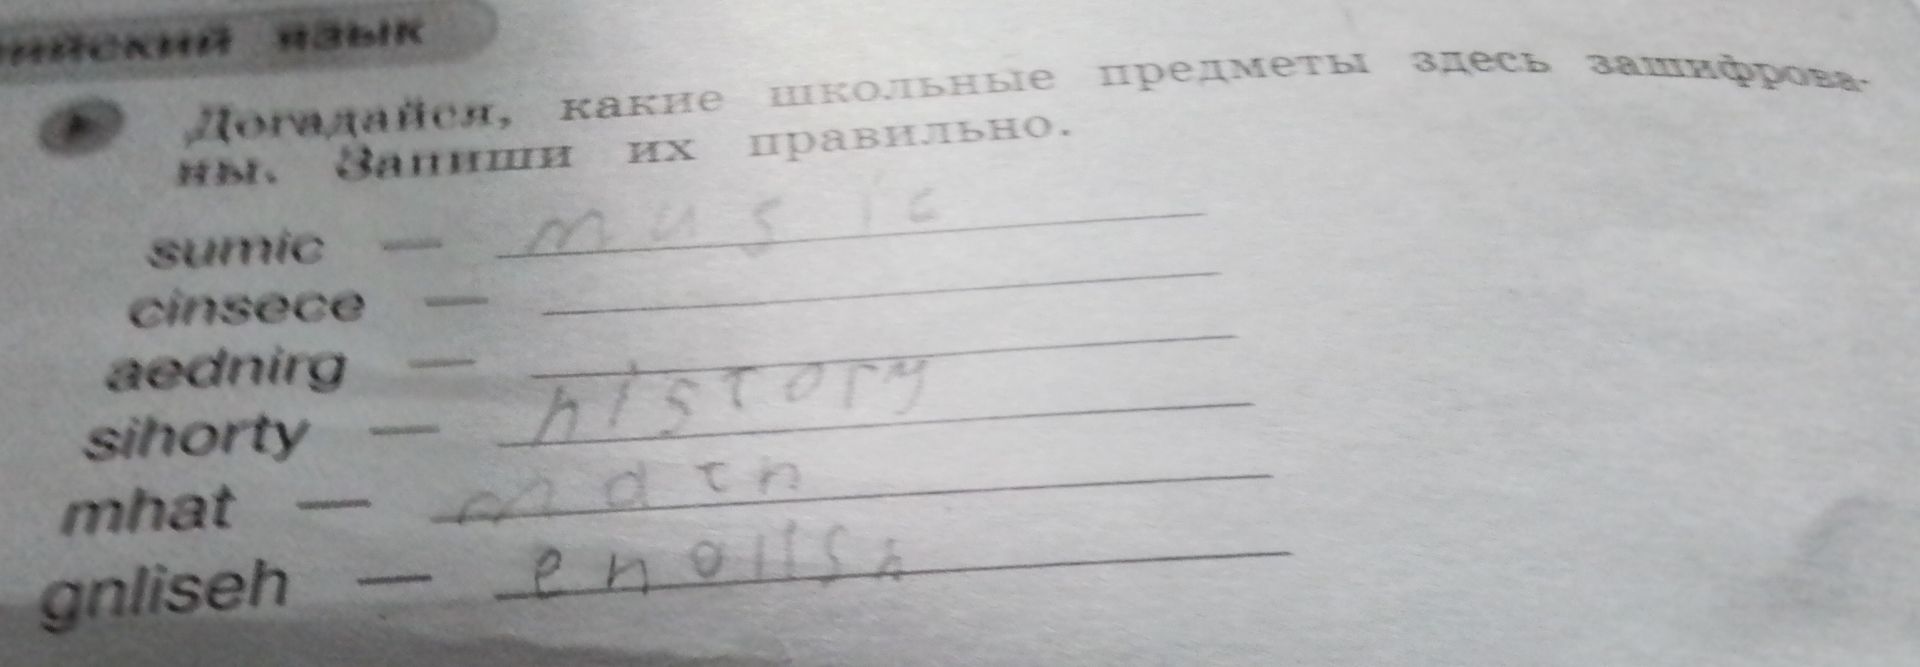 язык
Догадайся, какие школьные предметы здесь зашифрова-
ны. Запиши их правильно.
sumic — music
cinsece —
aednirg —
sihorty — history
mhat — math
gnliseh — english